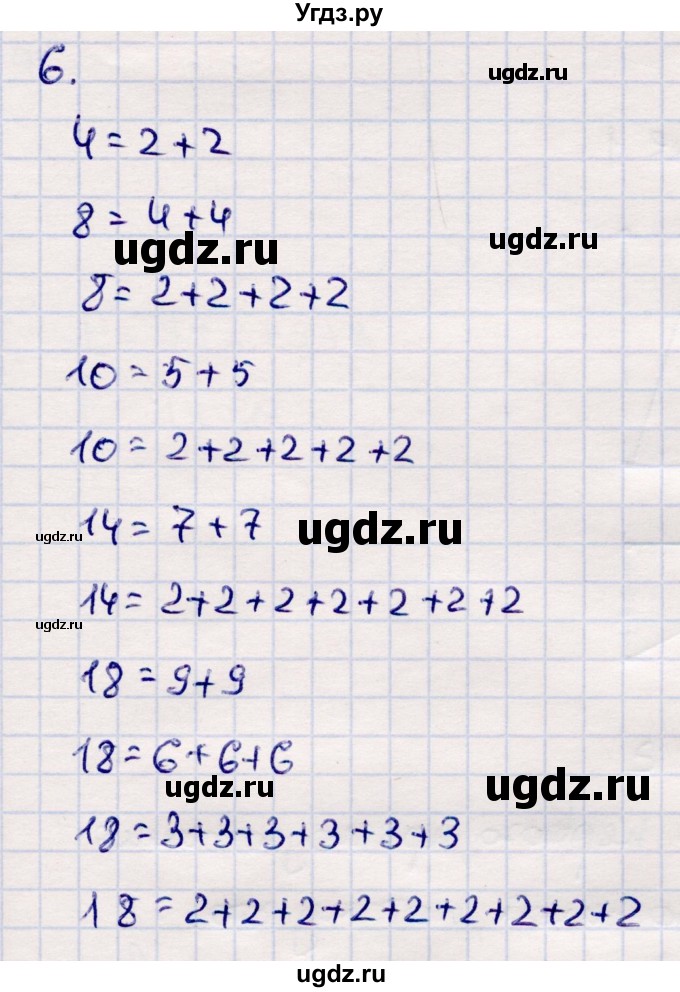 Угдз.ру
6.
ugdz.ru
4 = 2 + 2
8 = 4 + 4
ugdz.ru
ugdz.ru
8 = 2 + 2 + 2 + 2
10 = 5 + 5
10 = 2 + 2 + 2 + 2 + 2
14 = 7 + 7
ugdz.ru
ugdz.ru
14 = 2 + 2 + 2 + 2 + 2 + 2 + 2
ugdz.ru
18 = 9 + 9
18 = 6 + 6 + 6
ugdz.ru
ugdz.ru
18 = 3 + 3 + 3 + 3 + 3 + 3
18 = 2 + 2 + 2 + 2 + 2 + 2 + 2 + 2 + 2
ugdz.ru